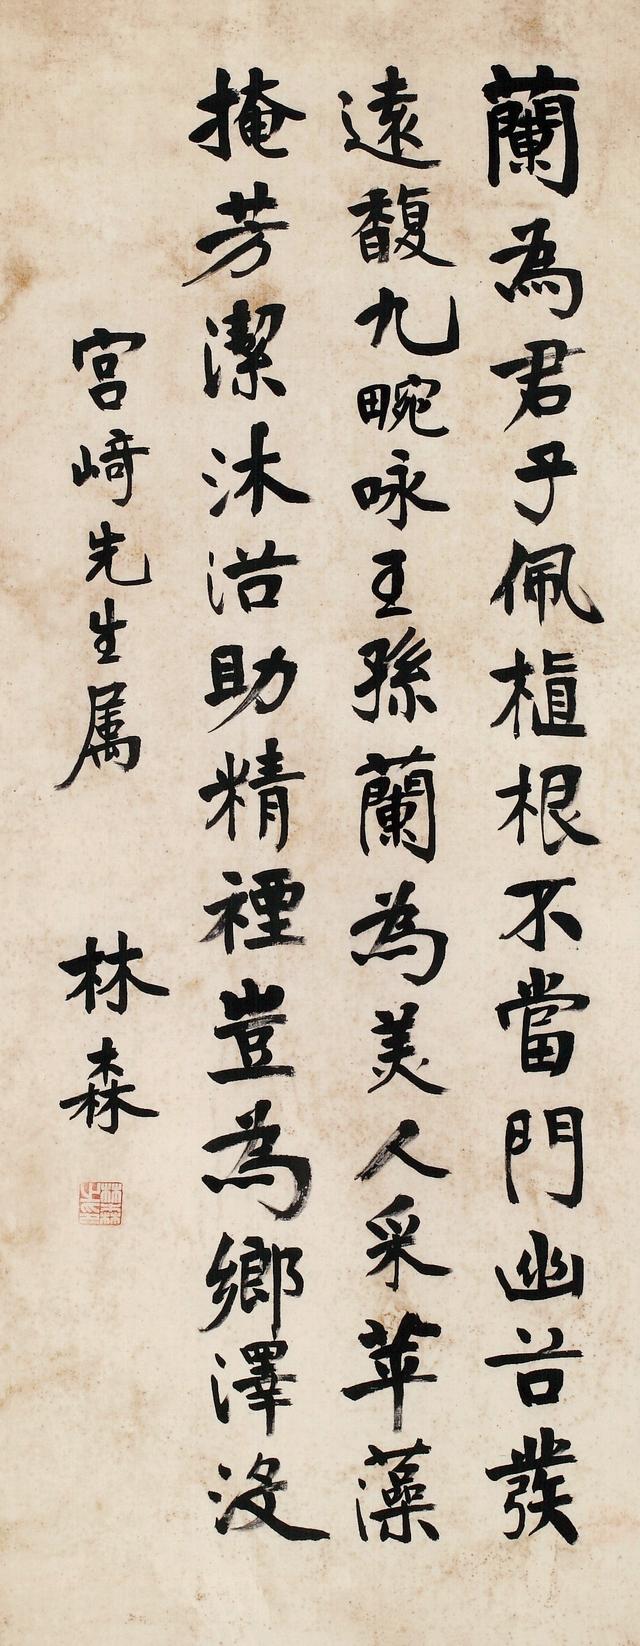 蘭為君子佩植根不當門幽谷發
遠馥九畹咏王孫蘭為美人采苹藻
掩芳潔沐浴助精禋豈為鄉澤沒
宮﨑先生属 林森
林森之印